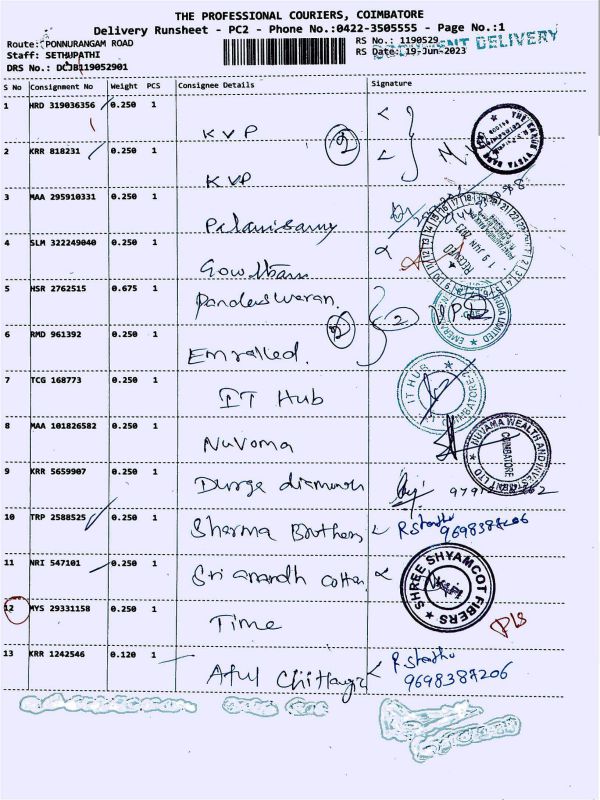 THE PROFESSIONAL COURIERS, COIMBATORE
Delivery Runsheet - PC2 - Phone No.:0422-3505555 - Page No.:1
Route: PONNURANGAM ROAD
RS No.: 1190529
DELIVERY
Staff: SETHUPATHI
RS Date: 19-Jun-2023
DRS No.: DCJB119052901
S No Consignment No Weight PCS Consignee Details Signature
1 HRD 319036356 0.250 1
KVP
2 KRR 818231 0.250 1
KVP
2
3 MAA 295910331 0.250 1
Palanisamy
4 SLM 322249040 0.250 1
Gowtham
RECEIVED
19 JUN 2023
5 HSR 2762515 0.675 1
Pandeswaran.
2
2
6 RMD 961392 0.250 1
Emralled.
7 TCG 168773 0.250 1
IT Hub
IT HUB
COIMBATORE
8 MAA 101826582 0.250 1
Nuvoma
NUVAMA WEALTH AND INVESTMENT LTD
COIMBATORE
9 KRR 5659907 0.250 1
Durga diamonds
10 TRP 2588525 0.250 1
Sharma Brothers
9698387206
11 NRI 547101 0.250 1
Sri anandh cotton
SHREE SHYAMCOT FIBERS
12 MYS 29331158 0.250 1
Time
PLS
13 KRR 1242546 0.120 1
Atul Chittagi
9698387206